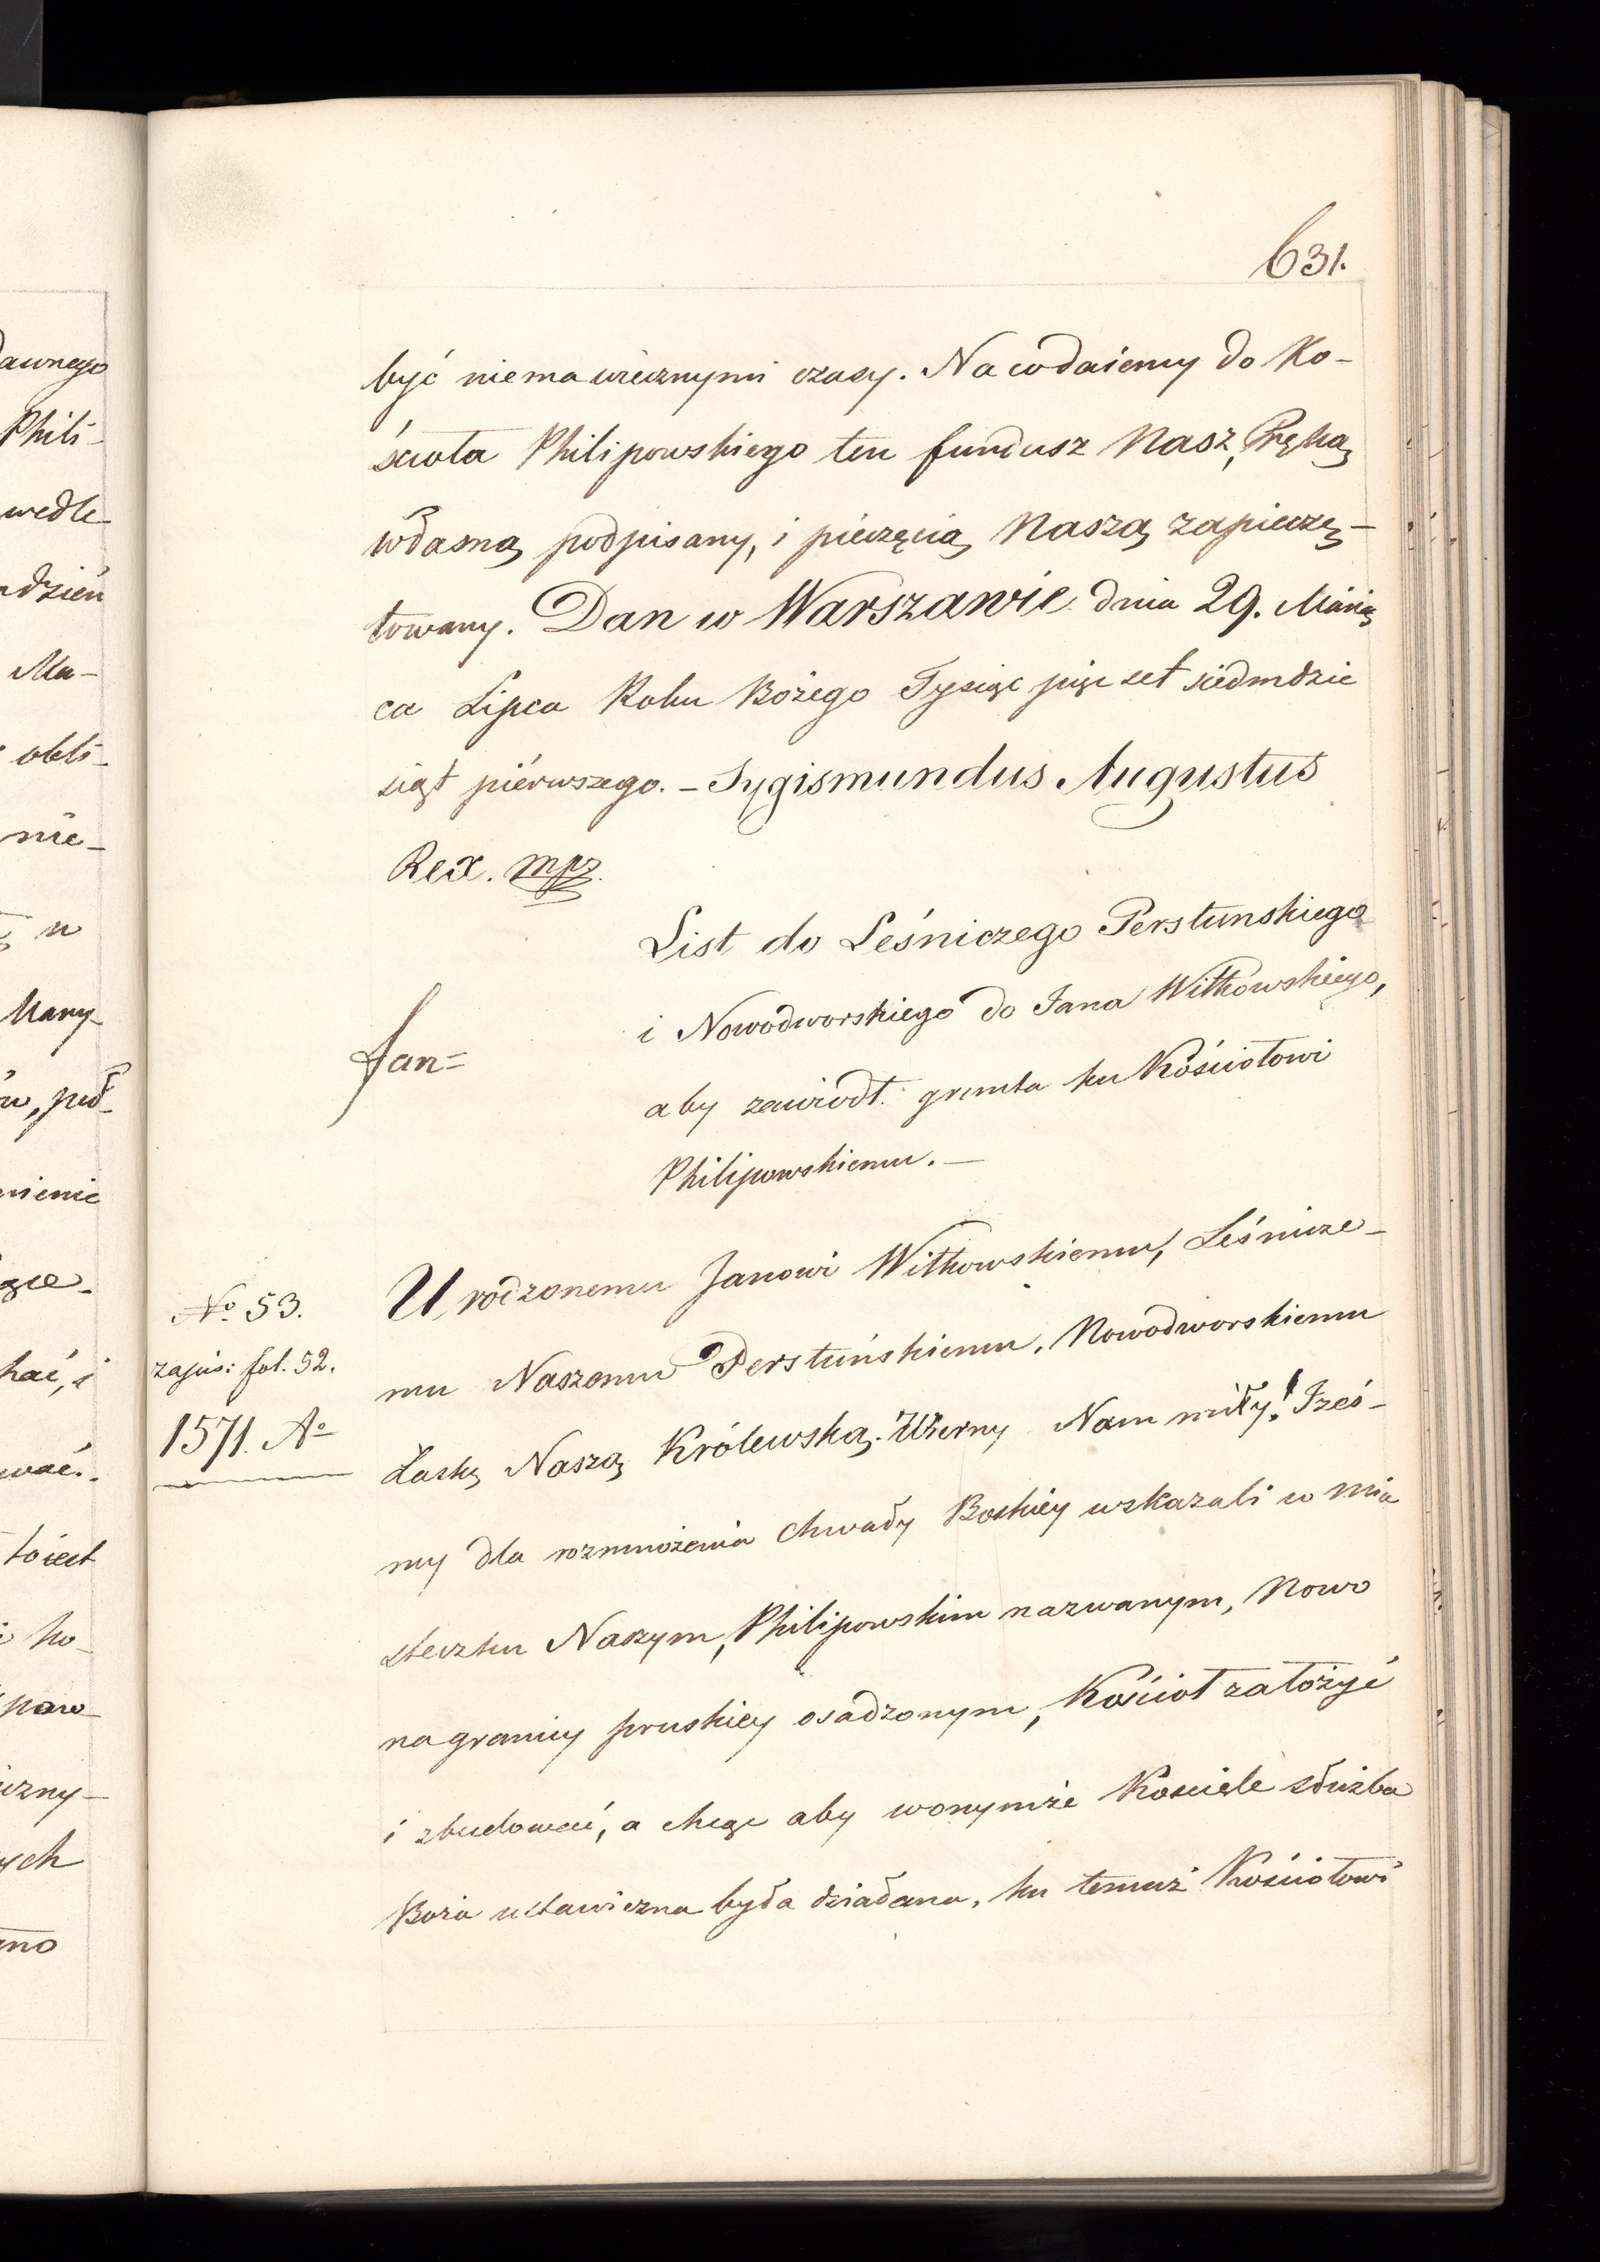 631.
być niema wiecznymi czasy. Na co daiemy do Ko-
ścioła Philipowskiego ten fundusz Nasz, Ręką
własną podpisany, i pieczęcią Naszą zapieczę-
towany. Dan w Warszawie dnia 29. Miesią
ca Lipca Roku Bożego Tysiąc pięć set siedmdzie
siąt piérwszego. – Sygismundus Augustus
Rex. mpr.
List do Leśniczego Perstunskiego
i Nowodworskiego do Jana Wilkowskiego,
aby zawiódł grunta ku Kościołowi
Philipowskiemu. –
Jan=
Urodzonemu Janowi Wilkowskiemu, Leśnicze-
mu Naszemu Perstuńskiemu, Nowodworskiemu
Łaskę Naszą Królewską. Wierny Nam miły! Iześ-
my dla rozmnożenia chwały Boskiéy wskazali w mia
steczku Naszym, Philipowskim nazwanym, Nowo
na granicy pruskiéy osadzonym, Kościoł założyć
i zbudować, a chcąc aby wonymże Kosciele służba
Boża ustawiczna była działana, ku temuż Kościołowi
No. 53.
zapis: fol. 52.
1571. Ao
dawnego
Phili-
wedle
dzień
Ma-
obli-
nie-
u
Mary-
pod-
nienie
hać, i
wać.
ko-
paro-
czny-
ych